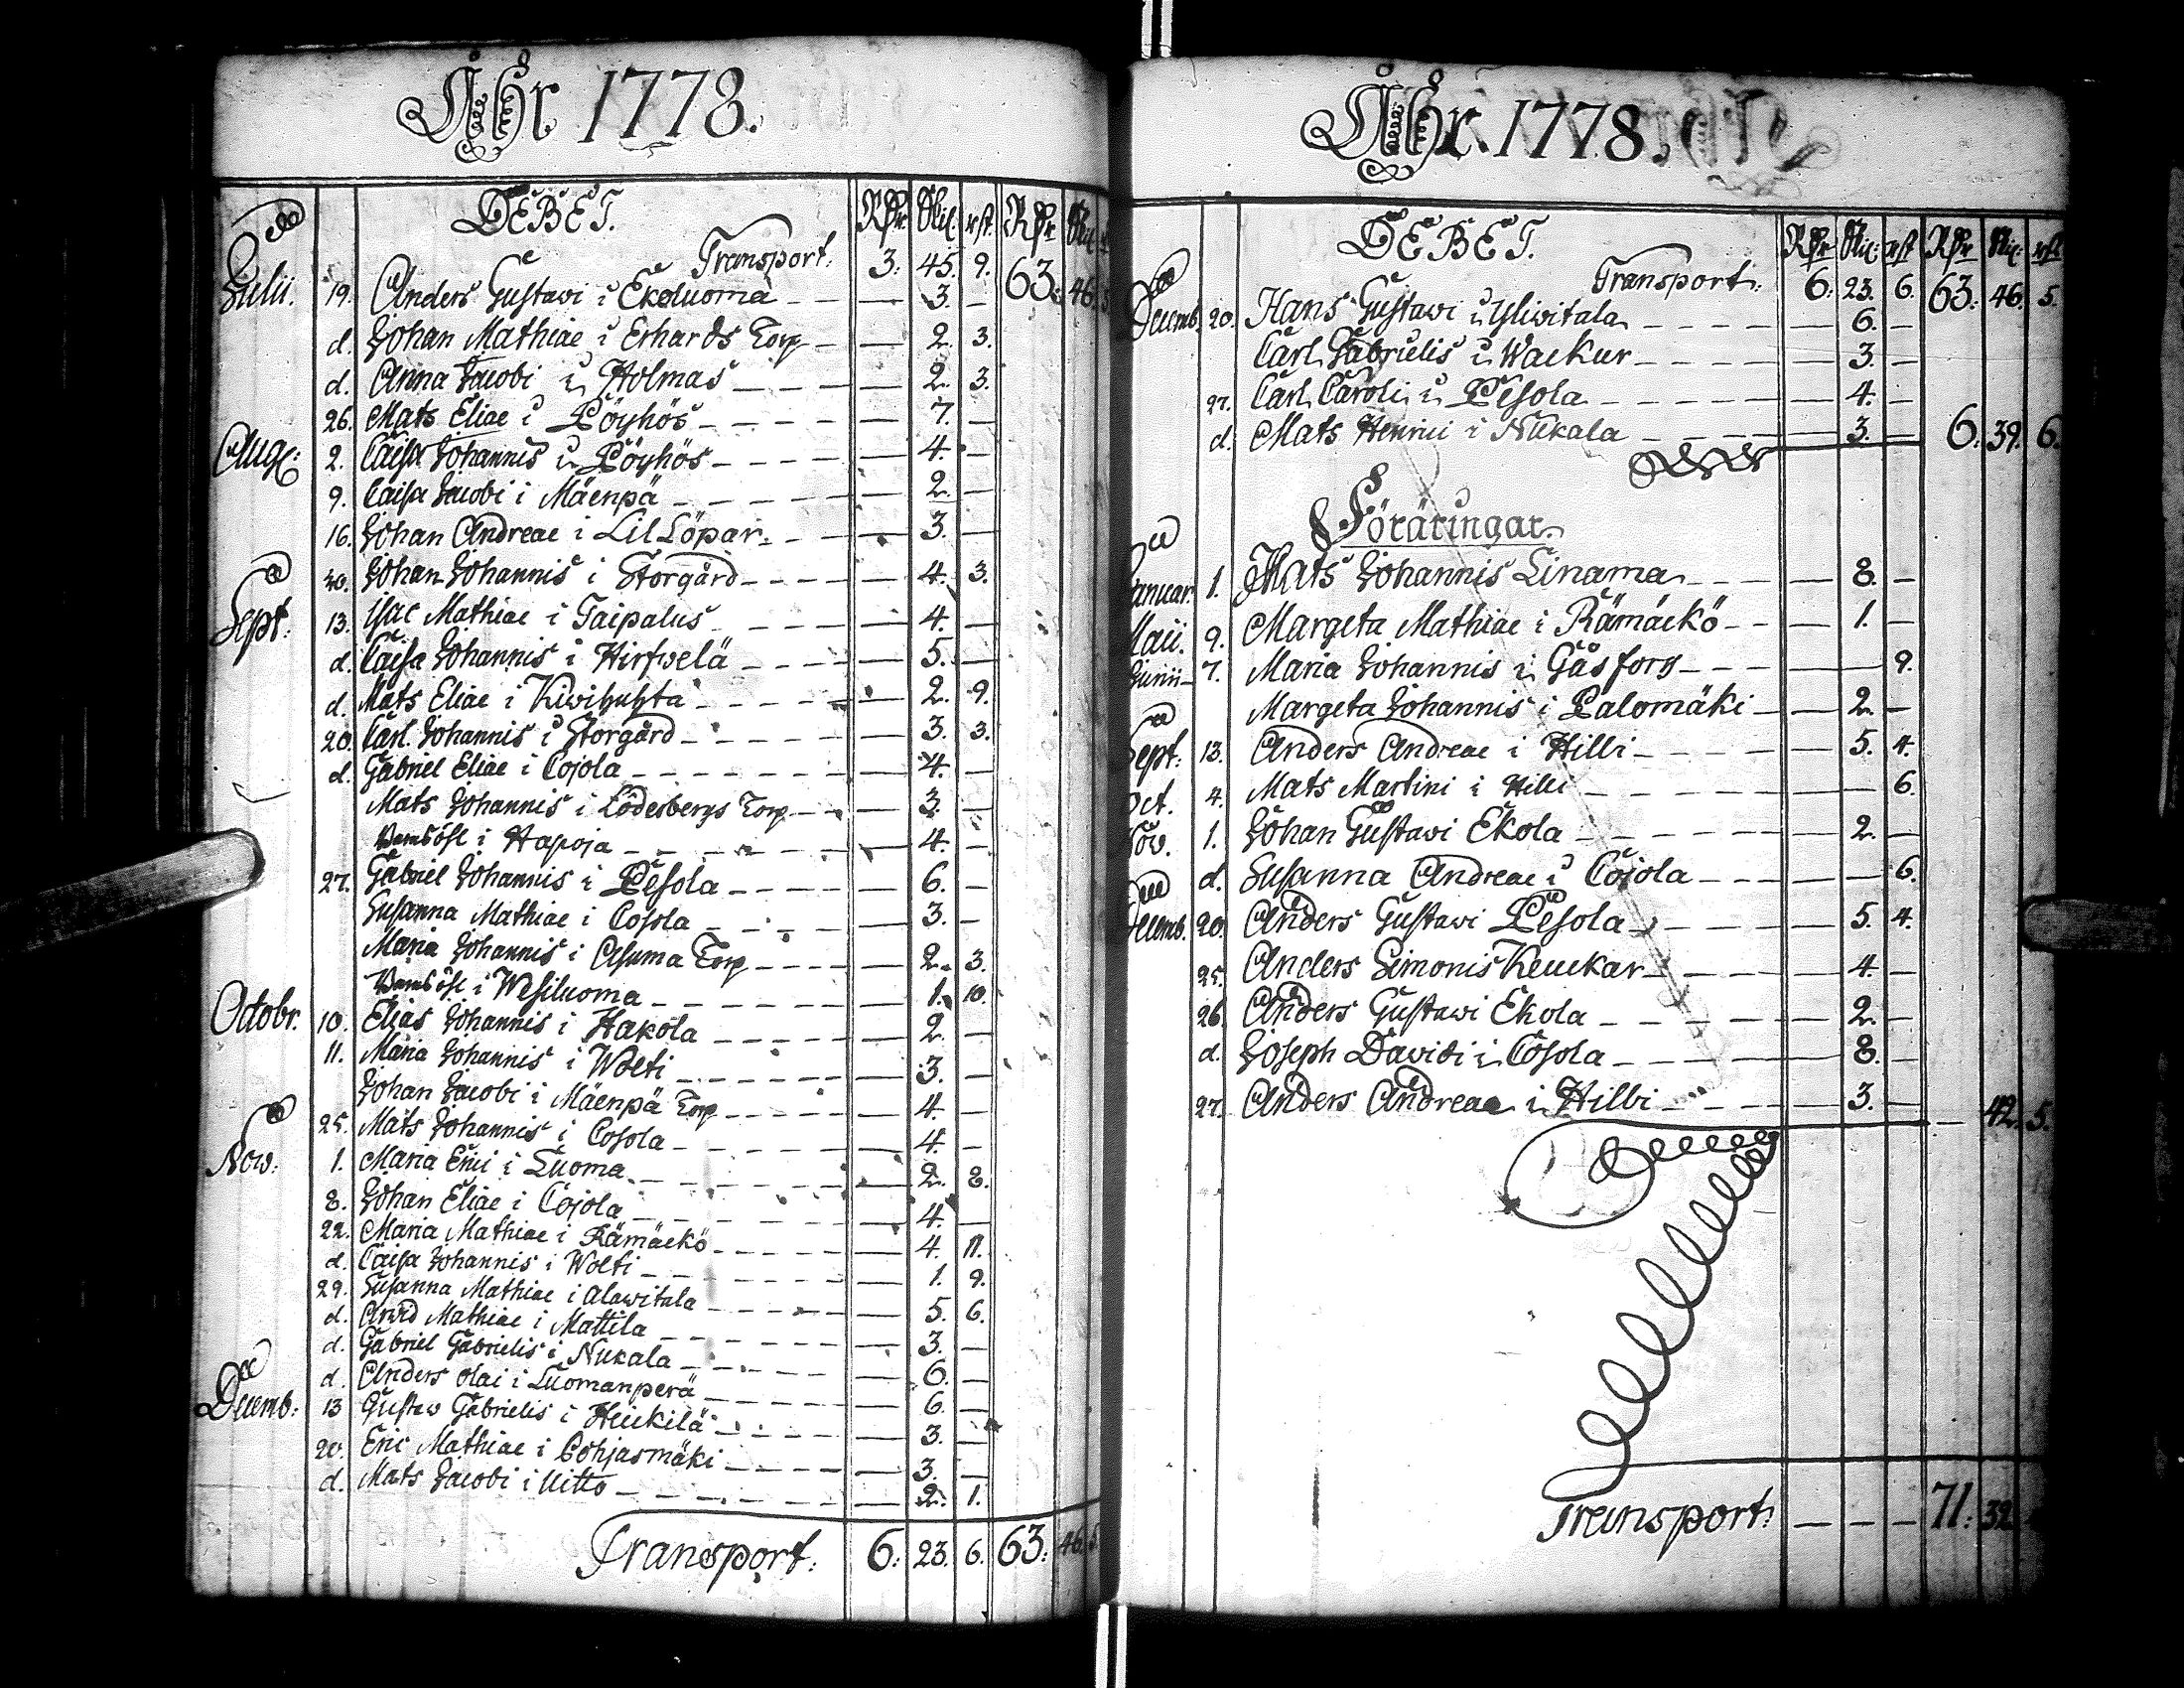 Åhr 1778.
DEBET. Rdr Skil. rst. Rdr Skil.
Transport: 3: 45. 9. 63: 46. 5
Julii. 19. Anders Gustavi i Ekoluoma — 3. —
d. Johan Mathiae i Erhards Torp — 2. 3.
d. Anna Jacobi i Holmas — 2. 3.
26. Mats Eliae i Pöyhös — 7. —
Aug: 2. Caisa Johannis i Pöyhös — 4. —
9. Caisa Jacobi i Mäenpä — 2. —
16. Johan Andreae i Lil Löpar — 3. —
30. Johan Johannis i Storgård — 4. 3.
Sept: 13. Isac Mathiae i Taipalus — 4. —
d. Caisa Johannis i Hirfwelä — 5. —
d. Mats Eliae i Kiwihuhta — 2. 9.
20. Carl Johannis i Storgård — 3. 3.
d. Gabriel Eliae i Cojola — 4. —
Mats Johannis i Lödesbergs Torp — 3. —
i Hapoja — 4. —
27. Gabriel Johannis i Pesola — 6. —
Susanna Mathiae i Cosola — 3. —
Maria Johannis i Asuma Torp — 2. 3.
i Wesiluoma — 1. 10.
Octobr. 10. Elias Johannis i Hakola — 2. —
11. Maria Johannis i Wolti — 3. —
Johan Jacobi i Mäenpä Torp — 4. —
25. Mats Johannis i Cosola — 4. —
Nov: 1. Maria Erici i Luoma — 2. 8.
8. Johan Eliae i Cojola — 4. —
22. Maria Mathiae i Rämäckö — 4. 11.
d. Caisa Johannis i Wolti — 1. 9.
29. Susanna Mathiae i Alawitala — 5. 6.
d. Arvid Mathiae i Mattila — 3. —
d. Gabriel Gabrielis i Nukala — 6. —
d. Anders Olai i Luomanperä — 6. —
Decemb: 13 Gustav Gabrielis i Heickilä — 3. —
20. Eric Mathiae i Pohjasmäki — 3. —
d. Mats Jacobi i Uitto — 2. 1.
Transport: 6: 23. 6. 63: 46. 5
Åhr. 1778.
DEBET. Rdr Skil: rst Rdr Skil: rst
Transport: 6: 23. 6. 63: 46. 5.
Decemb. 20. Hans Gustavi i Yliwitala — 6. —
Carl Gabrielis i Wackur — 3. —
27. Carl Caroli i Pesola — 4. —
d. Mats Henrici i Nukala — 3. — 6: 39. 6.
Föräringar.
Januar. 1. Mats Johannis Linama — 8. —
Maii. 9. Margeta Mathiae i Rämäckö — 1. —
Junii 7. Maria Johannis i Gåsforg — 9.
Margeta Johannis i Palomäki — 2. —
Sept: 13. Anders Andreae i Hilli — 5. 4.
Oct. 4. Mats Martini i Hilli — 6.
Nov. 1. Johan Gustavi Ekola — 2. —
d. Susanna Andreae i Cojola — 6.
Decemb. 20. Anders Gustavi Pesola — 5. 4.
25. Anders Simonis Keuckar — 4. —
26. Anders Gustavi Ekola — 2. —
d. Joseph Davidi i Cosola — 8. —
27. Anders Andreae i Hilbi — 3. — 42. 5.
Transport: — — — 71: 32.